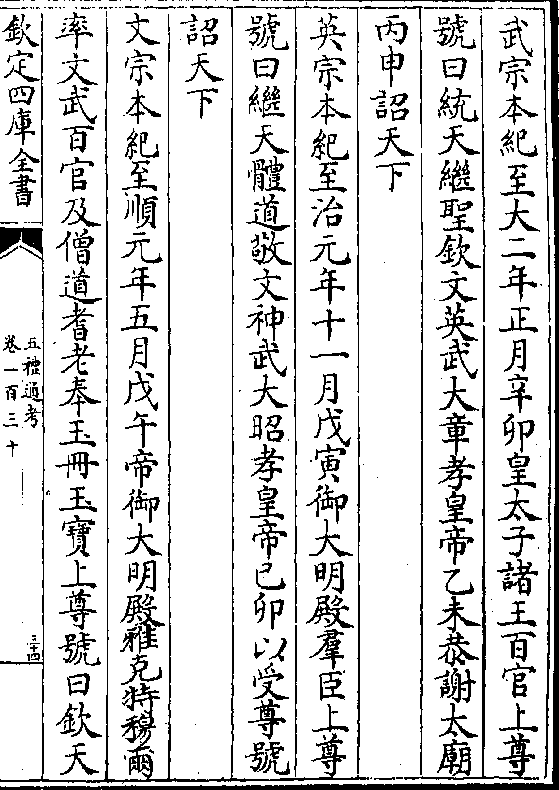 武宗本紀至大二年正月辛卯皇太子諸王百官上尊
號曰統天繼聖欽文英武大章孝皇帝乙未恭謝太廟
丙申詔天下
英宗本紀至治元年十一月戊寅御大明殿羣臣上尊
號曰繼天體道敬文神武大昭孝皇帝已卯以受尊號
詔天下
文宗本紀至順元年五月戊午帝御大明殿雅克特穆爾
率文武百官及僧道耆老奉玉冊玉寶上尊號曰欽天
欽定四庫全書
五禮通考
卷一百三十
三十四